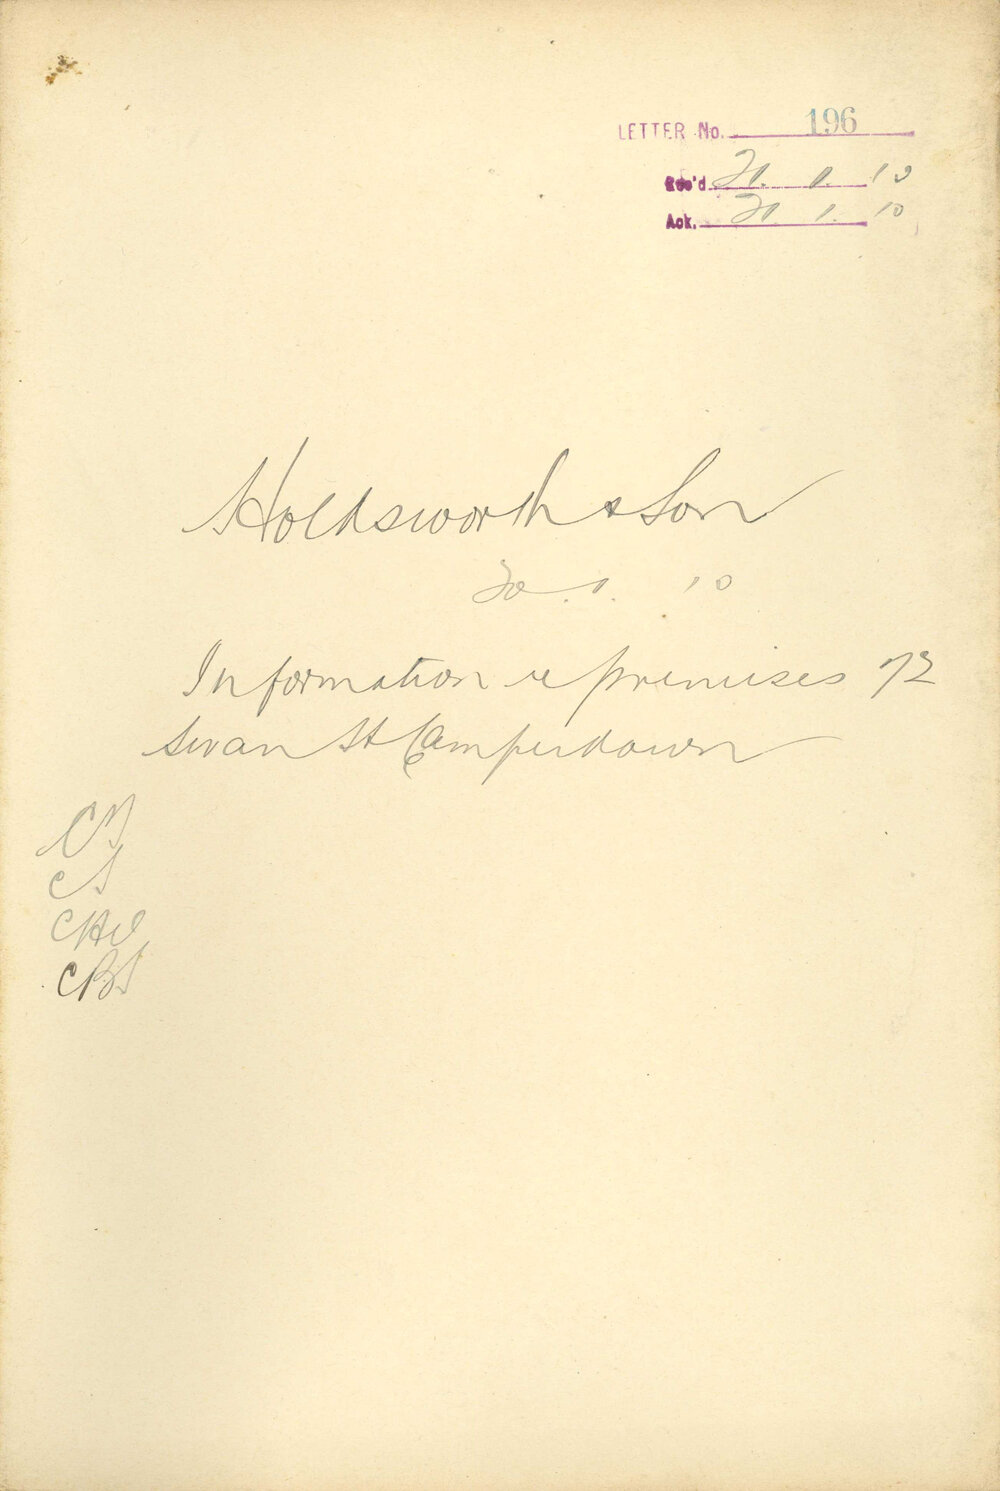 LETTER No. 196
Rec'd. 21. 1. 10
Ack. 21. 1. 10
Holdsworth & Son
20. 1. 10
Information re premises 72
Swan St Camperdown